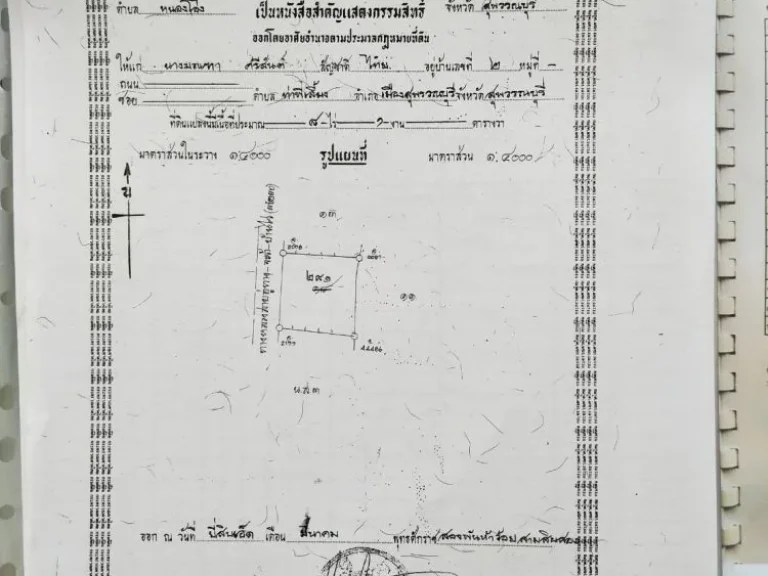 ตำบล หนองโอ่ง เป็นหนังสือสำคัญแสดงกรรมสิทธิ์ จังหวัด สุพรรณบุรี
ออกโดยอาศัยอำนาจตามประมวลกฎหมายที่ดิน
ให้แก่ ศรีสันต์ สัญชาติ ไทย อยู่บ้านเลขที่ ๒ หมู่ที่ -
ถนน
ซอย ตำบล ท่าพี่เลี้ยง อำเภอ เมืองสุพรรณบุรี จังหวัด สุพรรณบุรี
ที่ดินแปลงนี้มีเนื้อที่ประมาณ ๘ ไร่ ๑ งาน ตารางวา
มาตราส่วนในระวาง ๑:๔๐๐๐ รูปแผนที่ มาตราส่วน ๑:๔๐๐๐
น
๑๓
๒๙๑
๑๑
ทางหลวงสายอู่ทอง-
น.ส.๓
ออก ณ วันที่ ยี่สิบเอ็ด เดือน มีนาคม พุทธศักราช สองพันห้าร้อยสามสิบสอง